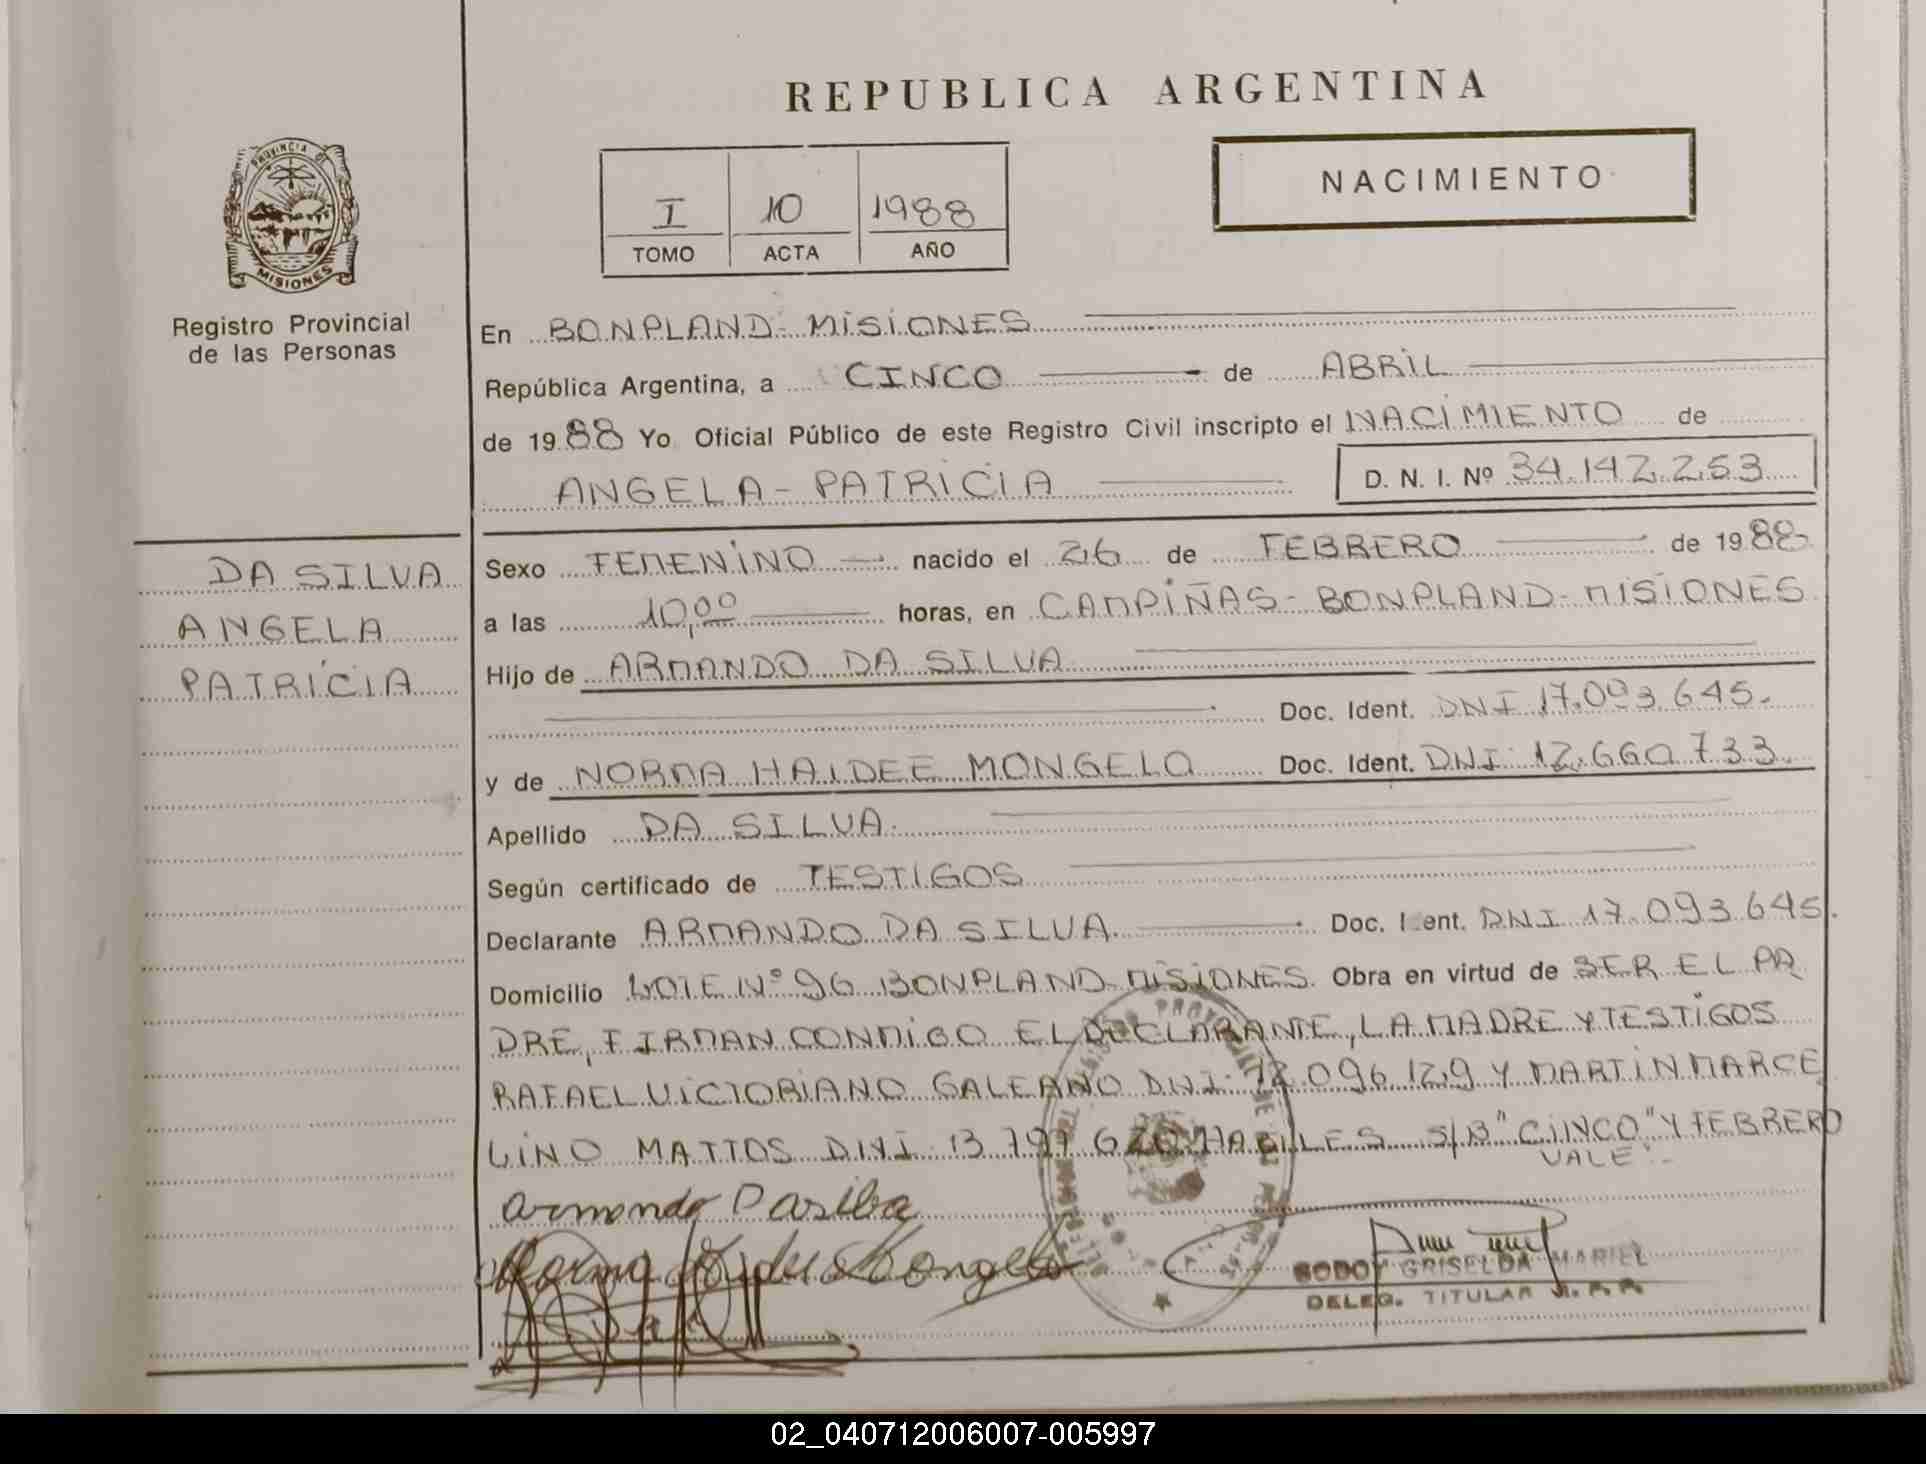 REPUBLICA ARGENTINA
PROVINCIA DE
MISIONES
Registro Provincial
de las Personas
I 10 1988
TOMO ACTA AÑO
NACIMIENTO
En BONPLAND - MISIONES
República Argentina, a CINCO de ABRIL
de 1988 Yo Oficial Público de este Registro Civil inscripto el NACIMIENTO de
ANGELA - PATRICIA D. N. I. Nº 34.142.253
DA SILVA
ANGELA
PATRICIA
Sexo FEMENINO nacido el 26 de FEBRERO de 1988
a las 10,00 horas, en CAMPIÑAS - BONPLAND - MISIONES
Hijo de ARMANDO DA SILVA
Doc. Ident. DNI 17.093.645.
y de NORMA HAIDEE MONGELO Doc. Ident. DNI 12.660.733
Apellido DA SILVA.
Según certificado de TESTIGOS
Declarante ARMANDO DA SILVA Doc. Ident. DNI 17.093.645.
Domicilio LOTE Nº 96 BONPLAND MISIONES. Obra en virtud de SER EL PA
DRE, FIRMAN CONMIGO EL DECLARANTE, LA MADRE Y TESTIGOS
RAFAEL VICTORIANO GALEANO DNI 096.129 Y MARTIN MARCE
LINO MATTOS DNI 13 HABILES S/B "CINCO" Y FEBRERO
VALE.-
Armondo Dasilba
Norma Mongelo
GODOY GRISELDA MARIEL
DELEG. TITULAR R.P.P.
02_040712006007-005997